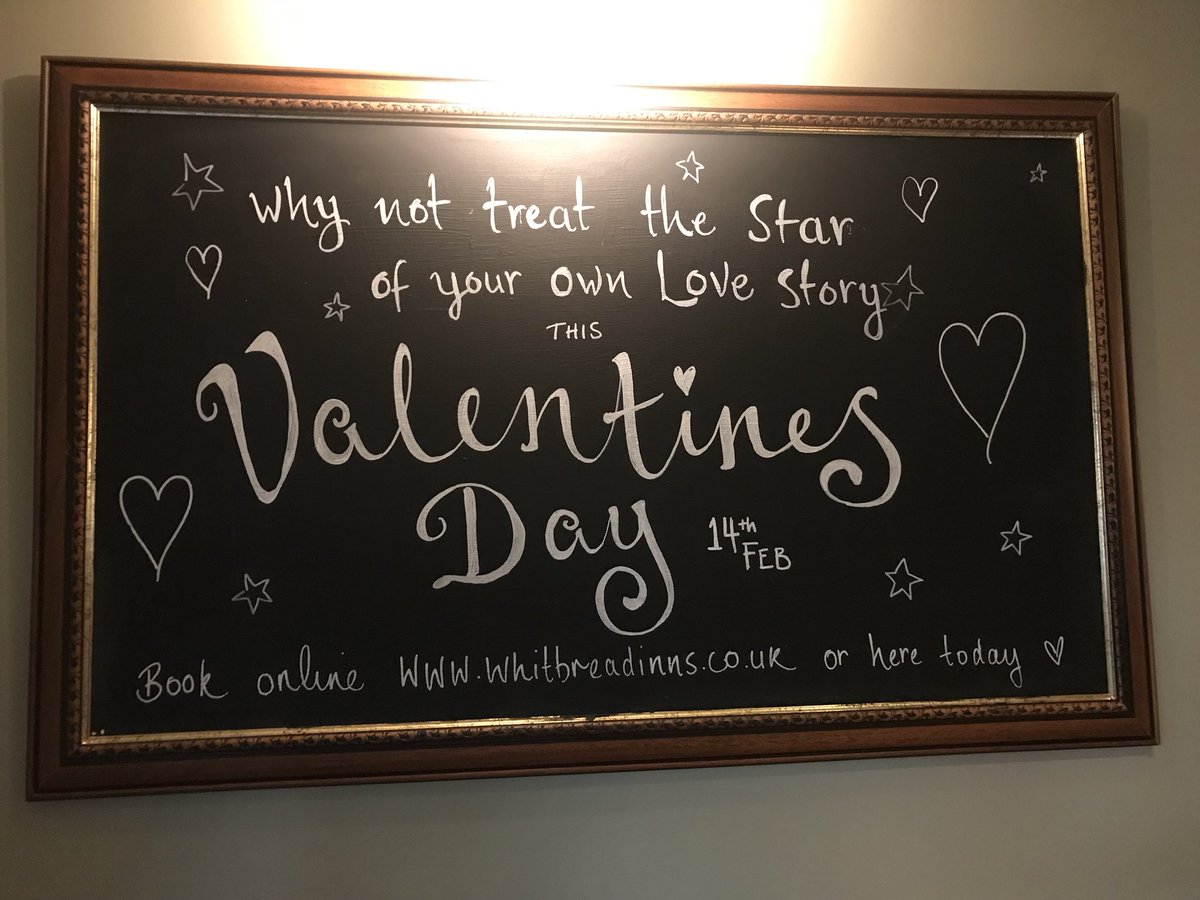 Why not treat the Star
of your own Love Story
THIS
Valentines
Day 14th
FEB
Book online WWW.whitbreadinns.co.uk or here today